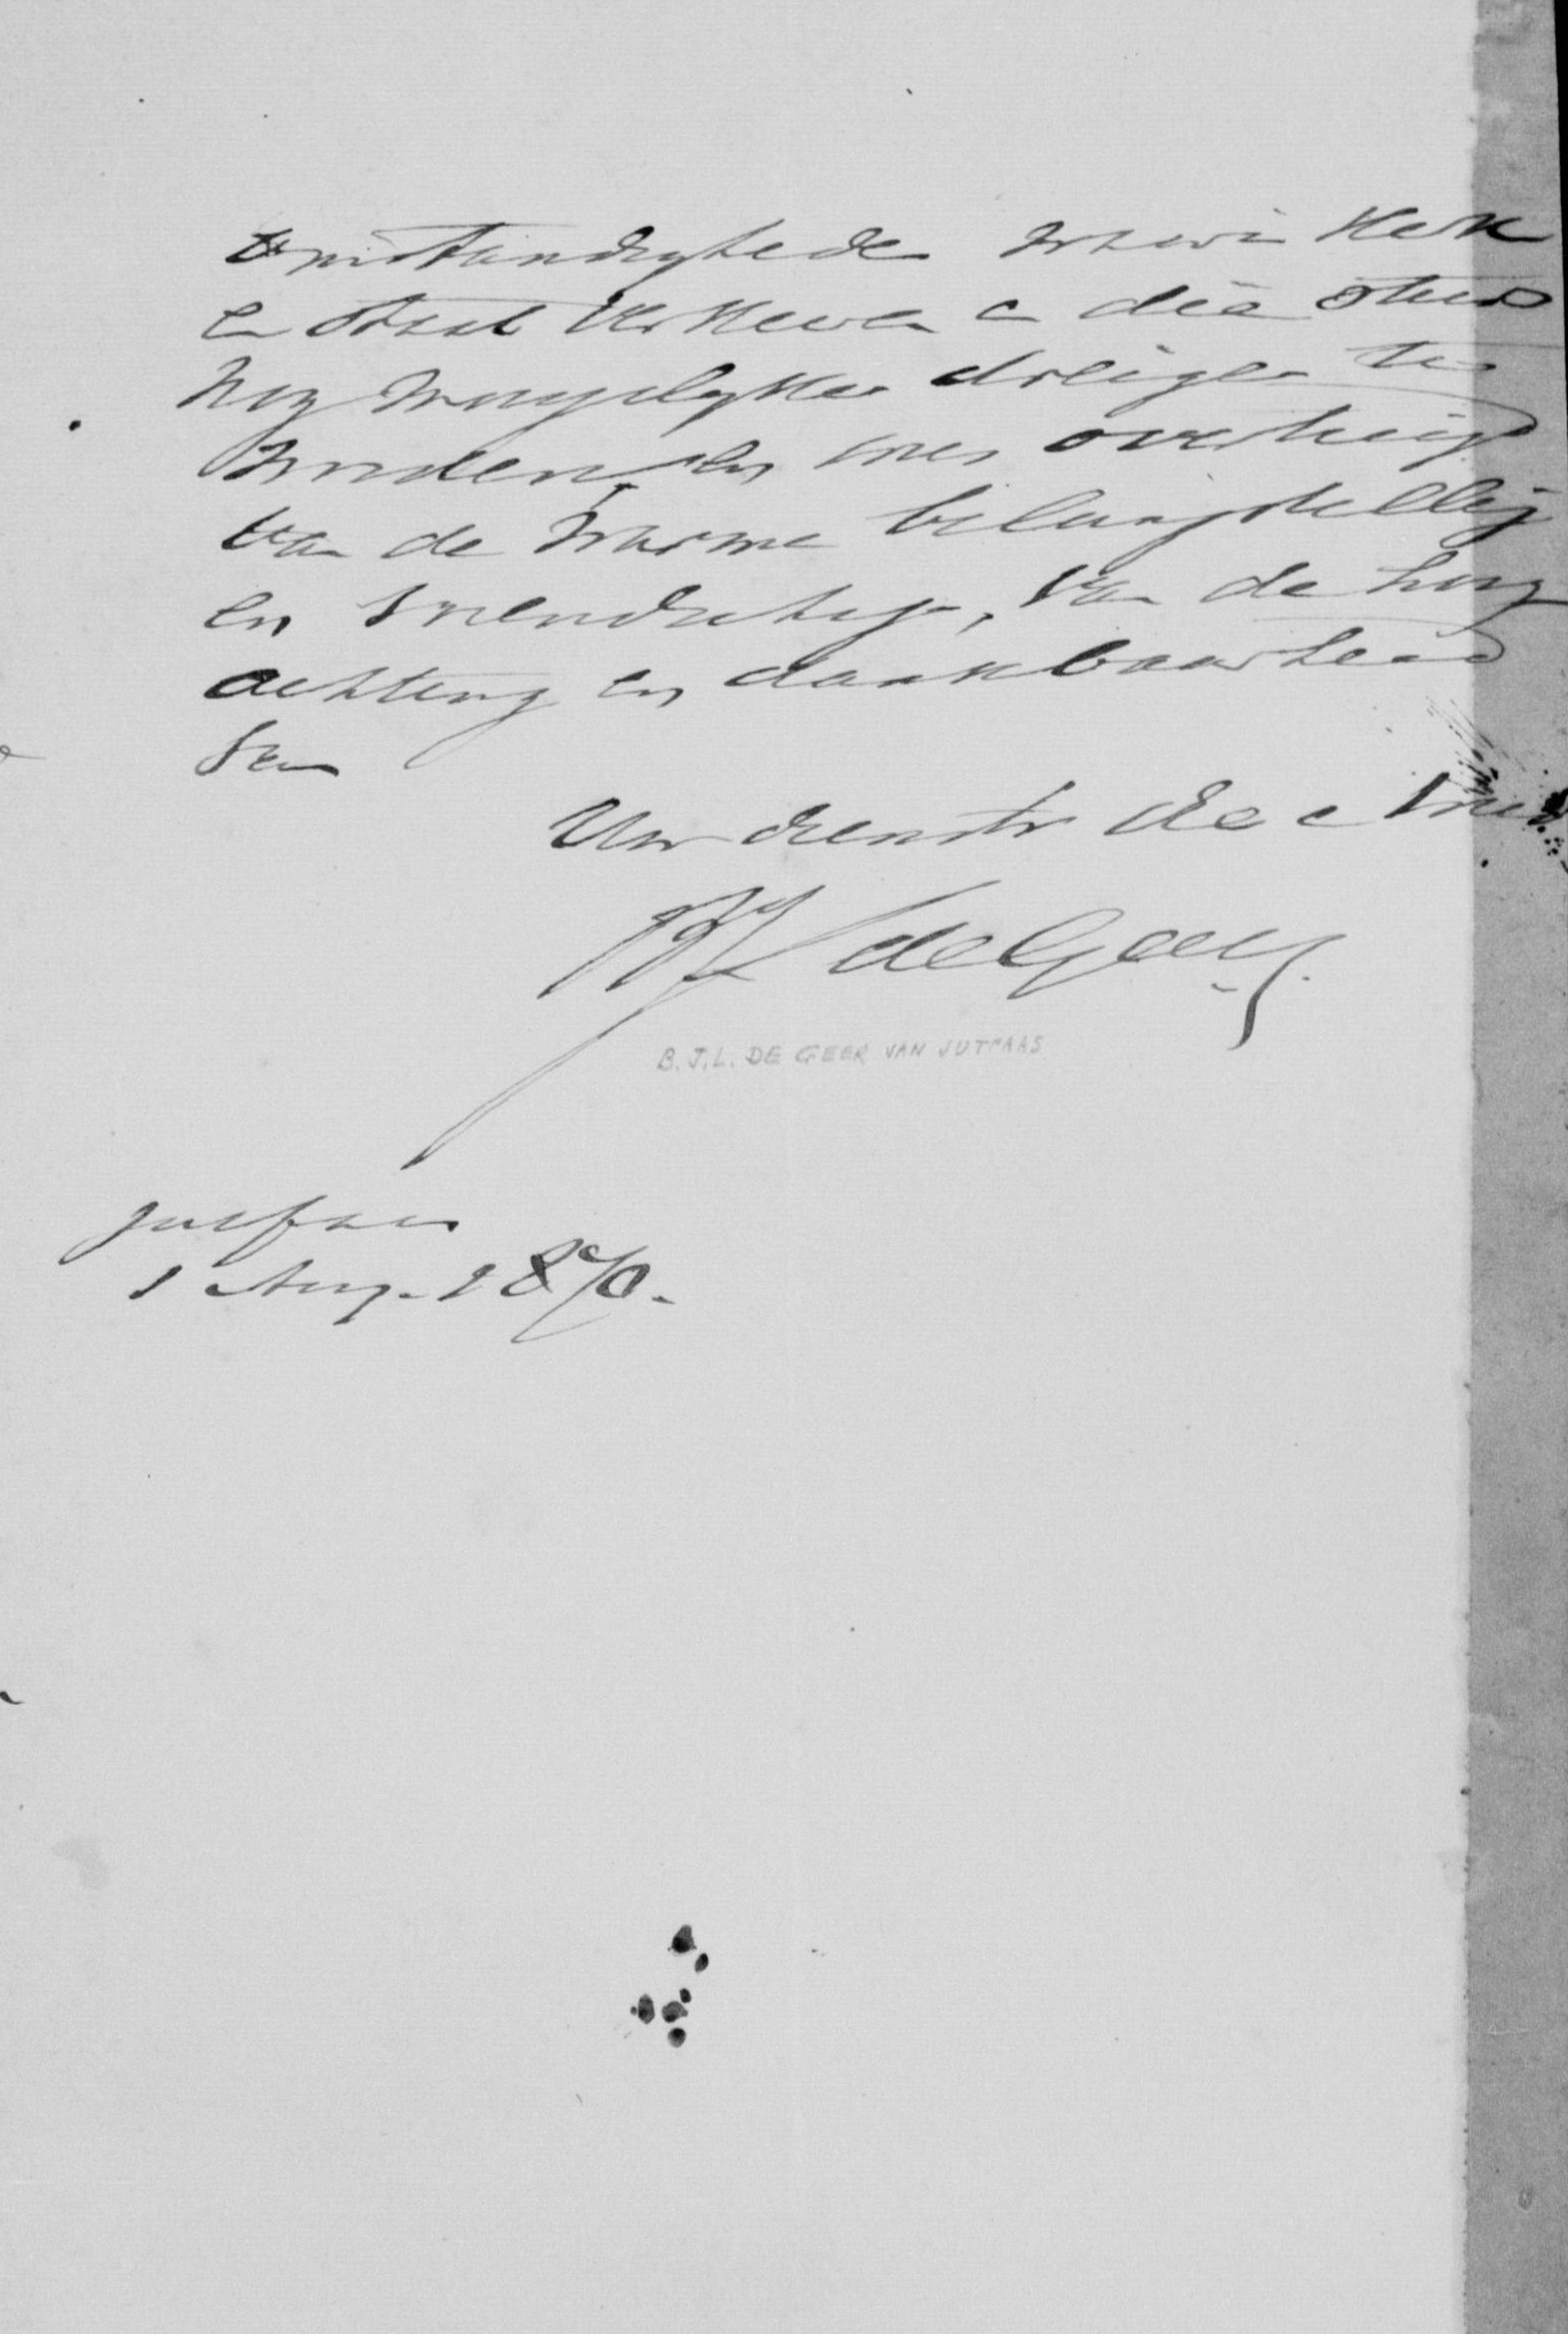 omstandigheden waarin Kerk
en Staat verkeeren en die steeds
nog moeyelyker dreigen te
worden, en wees overtuigd
van de warme belangstelling
en vriendschap, van de hoog
achting en dankbaarheid
van
Uw dienstv dee vriend
BJL de Geer
B.J.L. DE GEER VAN JUTFAAS
Jutfaas
1 Aug. 1870.